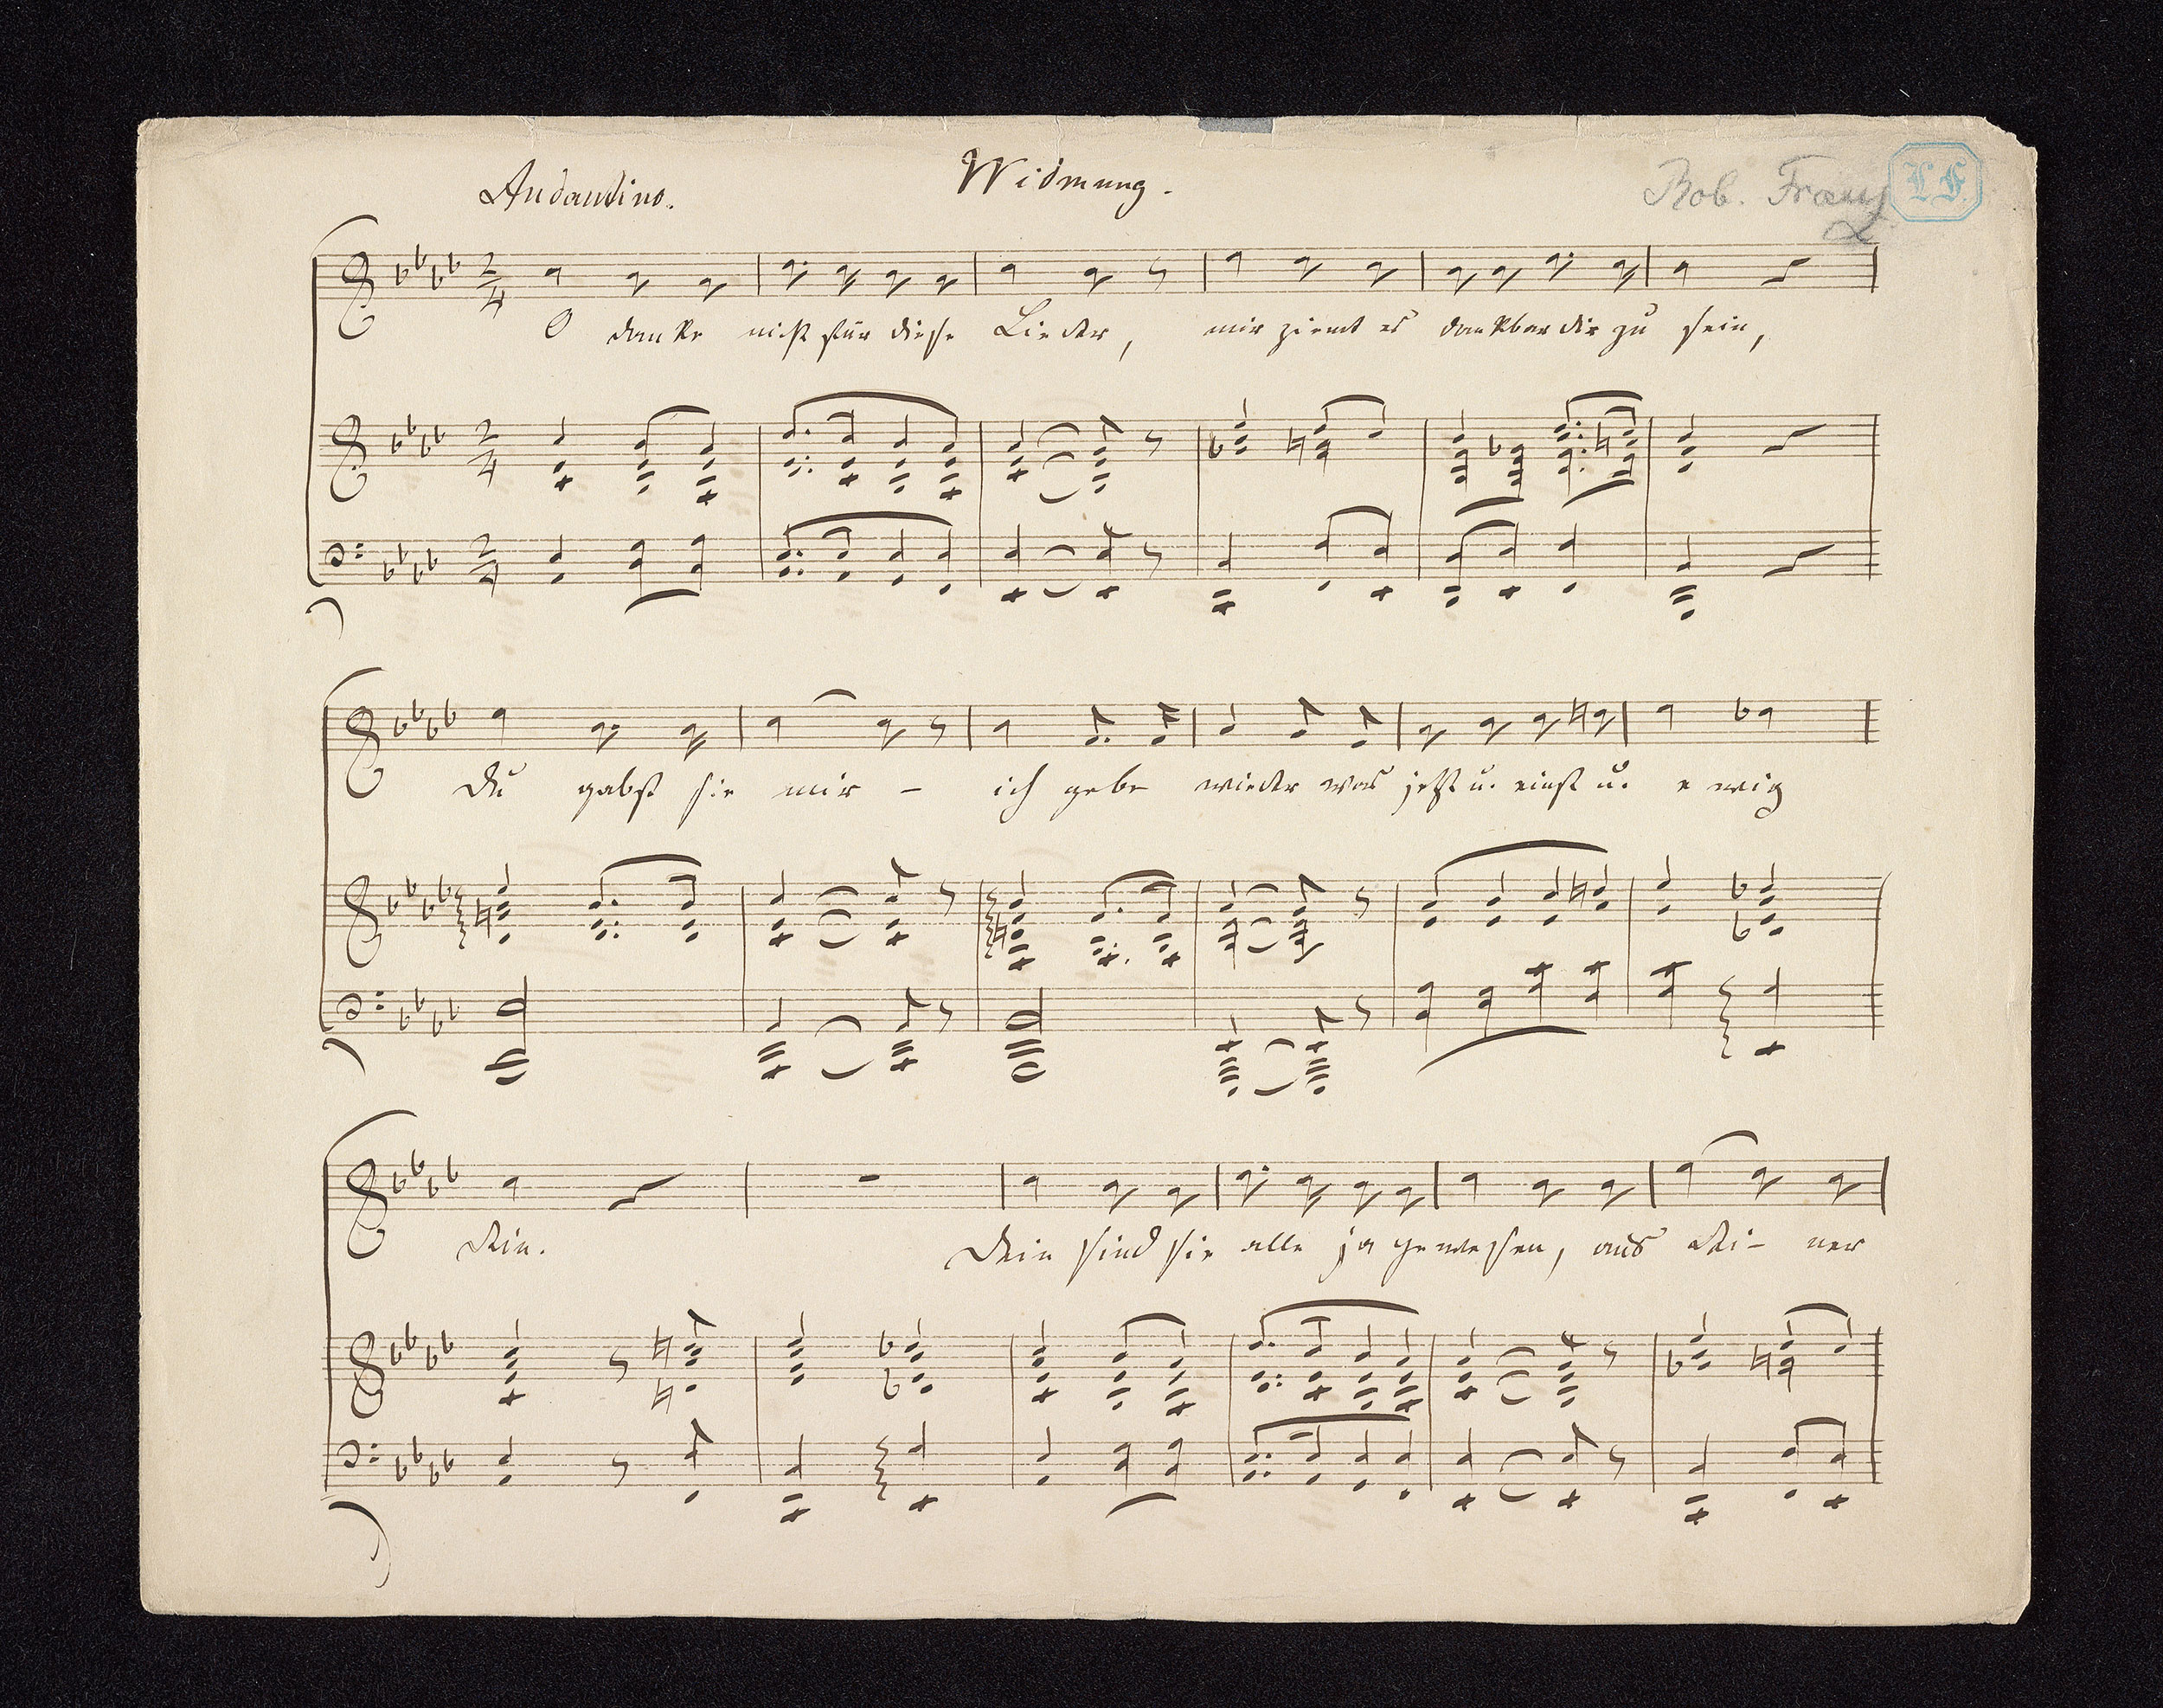 Andantino.
Widmung.
Rob. Franz
L.F.
O danke nicht für diese Lieder, mir ziemt es dankbar dir zu sein,
Du gabst sie mir – ich gebe wieder was jetzt u. einst u. ewig
dein. Dein sind sie alle ja gewesen, aus dei- ner